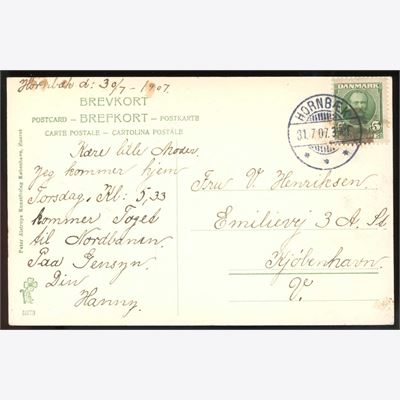 Hornbæk d: 30/7 - 1907.
BREVKORT
POSTCARD — BREFKORT — POSTKARTE
CARTE POSTALE — CARTOLINA POSTALE
Kære lille Moder.
Jeg kommer hjem
Torsdag. Kl: 5,33
kommer Toget
til Nordbanen.
Paa Gensyn.
Din
Hanny.
Peter Alstrups Kunstforlag København, Eneret
DANMARK
5
HORNBÆK
31.7.07.
Fru V. Henriksen.
Emilievej 3 A. St.
Kjøbenhavn.
V.